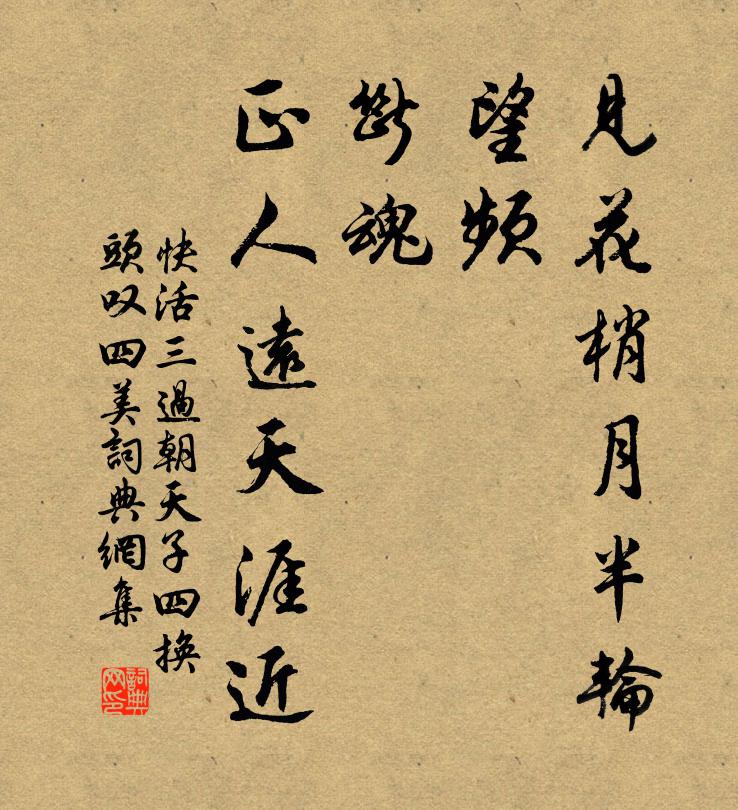 見花梢月半輪
望頻
斷魂
正人遠天涯近
快活三過朝天子四換
頭叹四美詞典網集
詞典网印